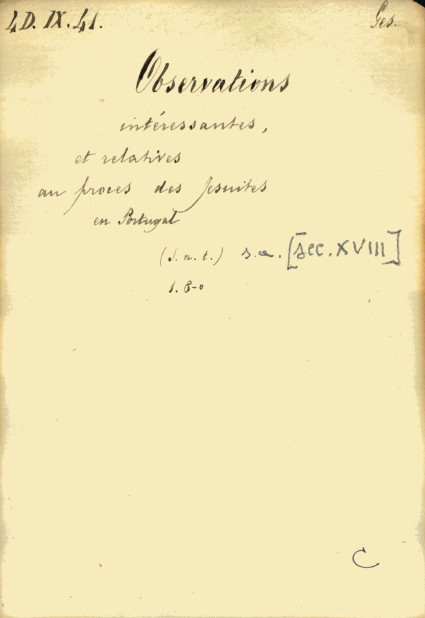 4D. IX. 41. Ges.
Observations
intéressantes,
et relatives
au procès des Jesuites
en Portugal
(s. n. t.) s.a. [sec. XVIII]
1. 8-o
C